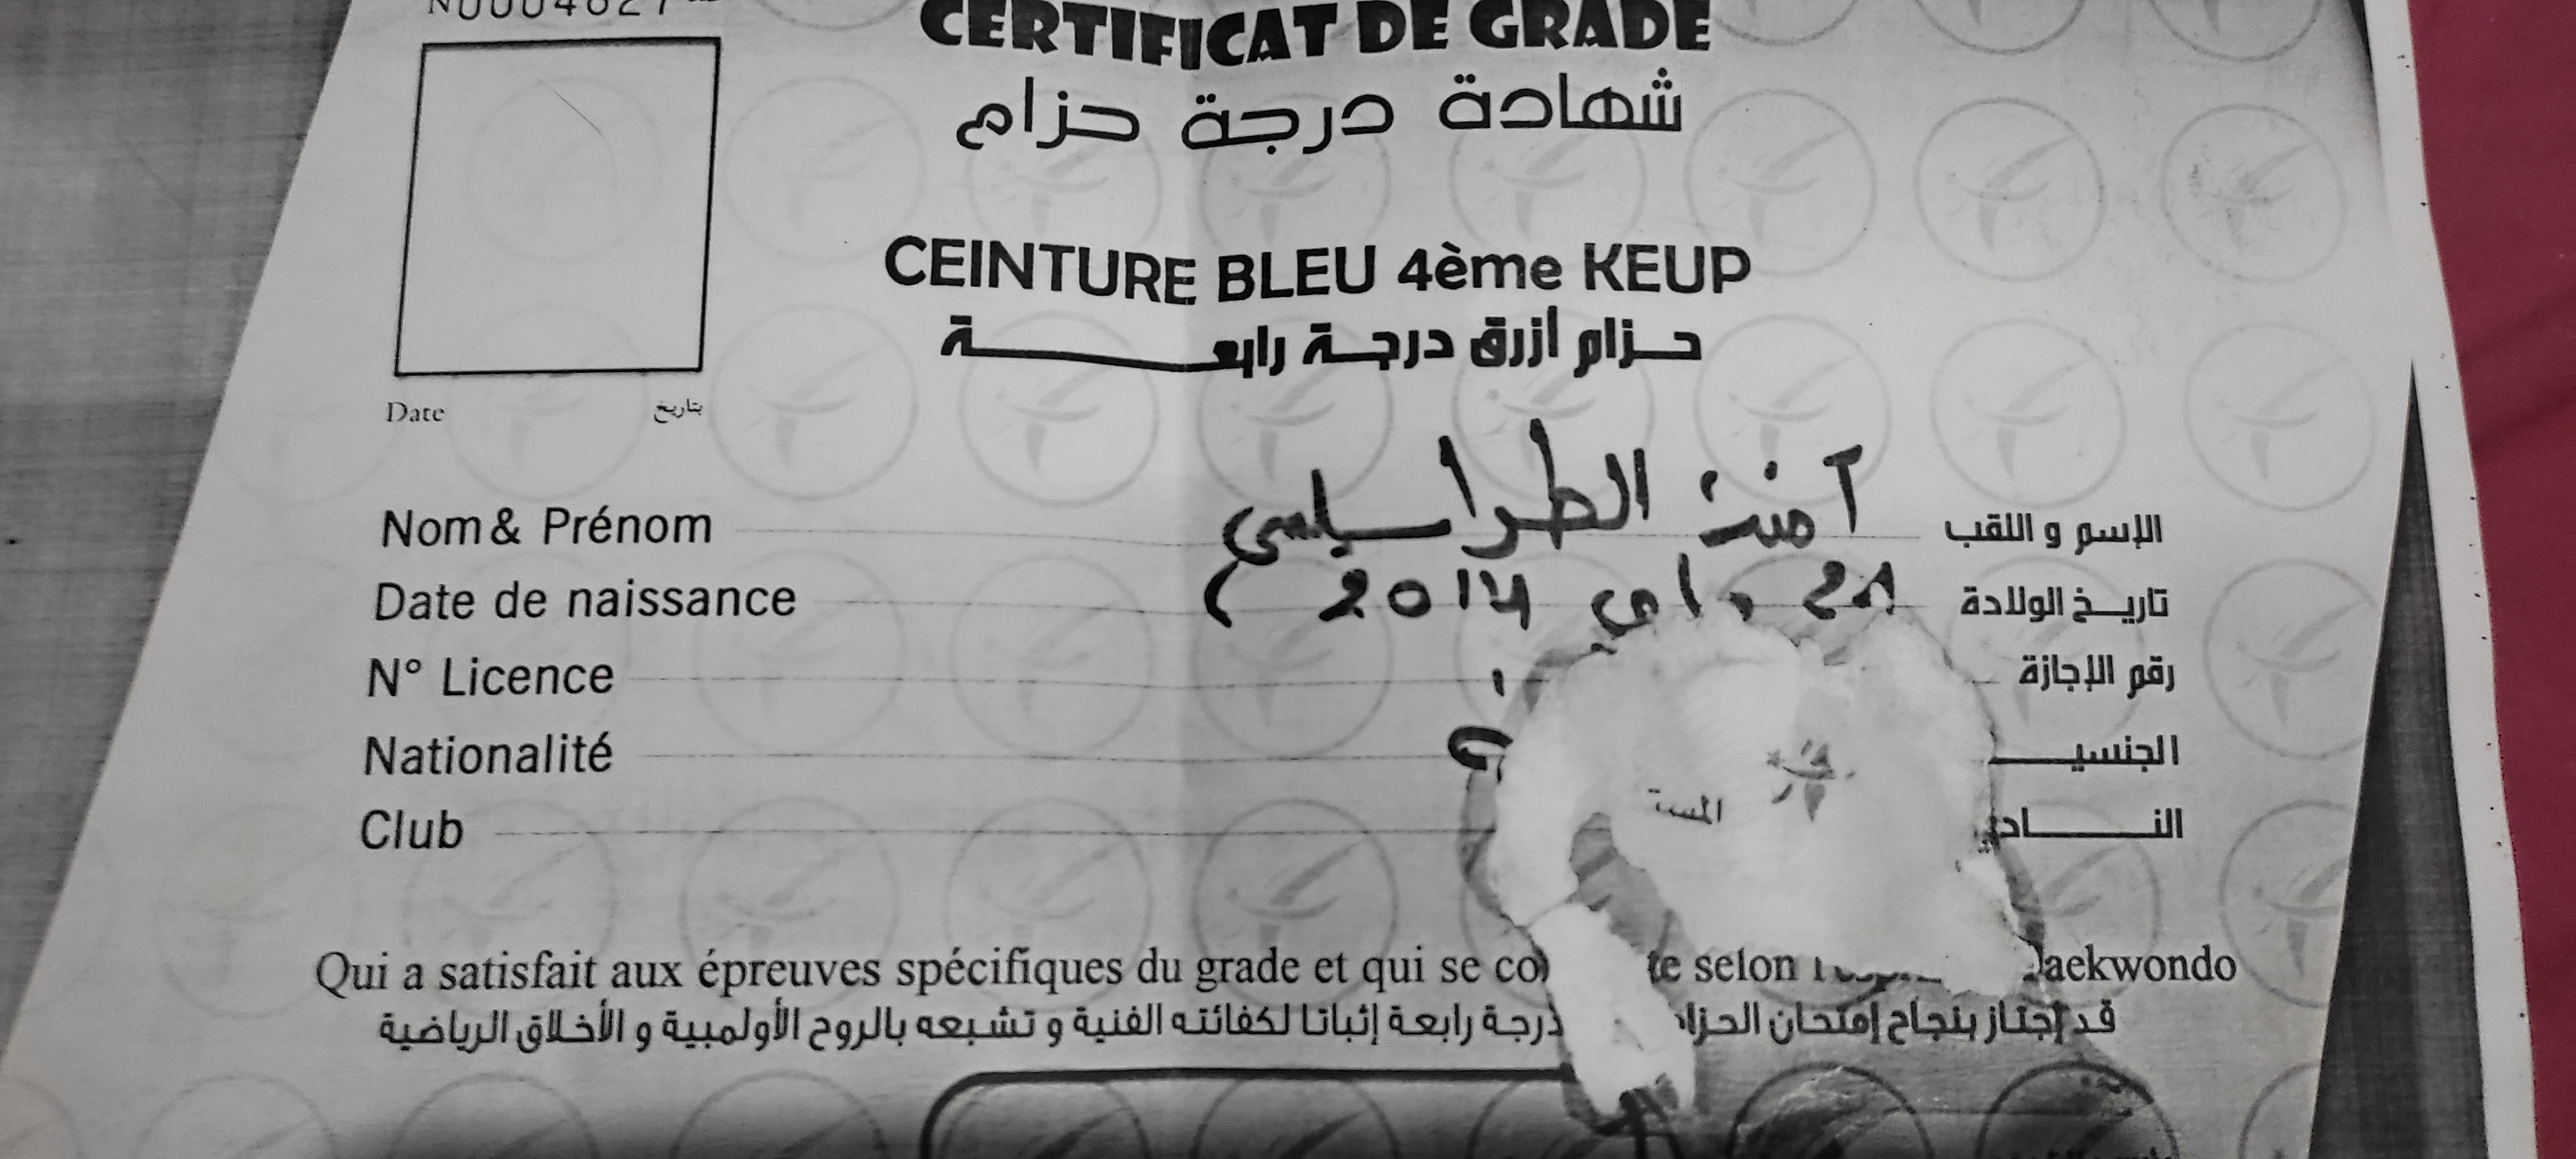 CERTIFICAT DE GRADE
شهادة درجة حزام
CEINTURE BLEU 4ème KEUP
حزام أزرق درجة رابعة
Date بتاريخ
Nom & Prénom آمنة الطرابلسي الإسم و اللقب
Date de naissance 2014 تاريخ الولادة
N° Licence رقم الإجازة
Nationalité
Club
Qui a satisfait aux épreuves spécifiques du grade et qui se selon
قد إجتاز بنجاح إمتحان درجة رابعة إثباتا لكفائته الفنية و تشبعه بالروح الأولمبية و الأخلاق الرياضية